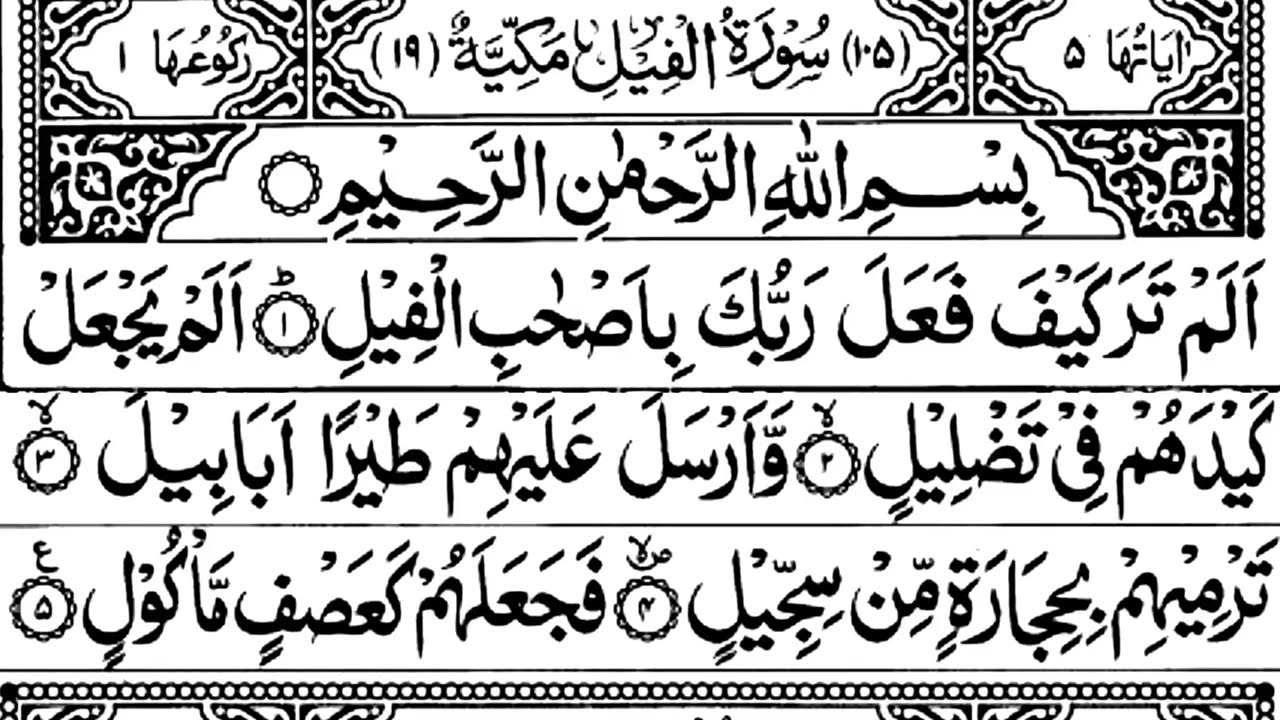 اٰيَاتُهَا ٥ (١٠٥) سُوْرَةُ الْفِيْلِ مَكِّيَّةٌ (١٩) رُكُوْعُهَا ١
بِسْمِ اللّٰهِ الرَّحْمٰنِ الرَّحِيْمِ
اَلَمْ تَرَ كَيْفَ فَعَلَ رَبُّكَ بِاَصْحٰبِ الْفِيْلِ ؕ ١ اَلَمْ يَجْعَلْ
كَيْدَهُمْ فِيْ تَضْلِيْلٍ ۙ ٢ وَّاَرْسَلَ عَلَيْهِمْ طَيْرًا اَبَابِيْلَ ۙ ٣
تَرْمِيْهِمْ بِحِجَارَةٍ مِّنْ سِجِّيْلٍ ۪ۙ ٤ فَجَعَلَهُمْ كَعَصْفٍ مَّاْكُوْلٍ ع ٥